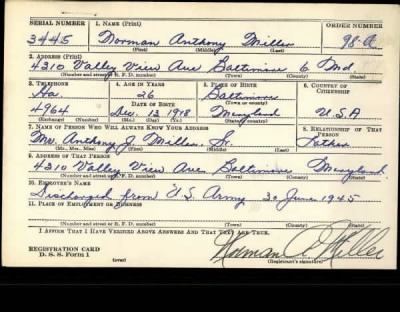 SERIAL NUMBER 1. NAME (Print) ORDER NUMBER
3445 Norman Anthony Miller 98-A
(First) (Middle) (Last)
2. ADDRESS (Print)
4310 Valley View Ave Baltimore 6 Md.
(Number and street or R. F. D. number) (Town) (County) (State)
3. TELEPHONE 4. AGE IN YEARS 5. PLACE OF BIRTH 6. COUNTRY OF CITIZENSHIP
Ha. 26 Baltimore
4964 DATE OF BIRTH (Town or county)
Dec. 13 1918 Maryland U.S.A
(Exchange) (Number) (Mo.) (Day) (Yr.) (State or country)
7. NAME OF PERSON WHO WILL ALWAYS KNOW YOUR ADDRESS 8. RELATIONSHIP OF THAT PERSON
Mr. Anthony J. Miller, Sr. Father
(Mr., Mrs., Miss) (First) (Middle) (Last)
9. ADDRESS OF THAT PERSON
4310 Valley View Ave Baltimore Maryland
(Number and street or R. F. D. number) (Town) (County) (State)
10. EMPLOYER'S NAME
Discharged from U.S. Army 30 June 1945
11. PLACE OF EMPLOYMENT OR BUSINESS
(Number and street or R. F. D. number) (Town) (County) (State)
I AFFIRM THAT I HAVE VERIFIED ABOVE ANSWERS AND THAT THEY ARE TRUE.
REGISTRATION CARD
D. S. S. Form 1 (over) Norman A Miller
(Registrant's signature)